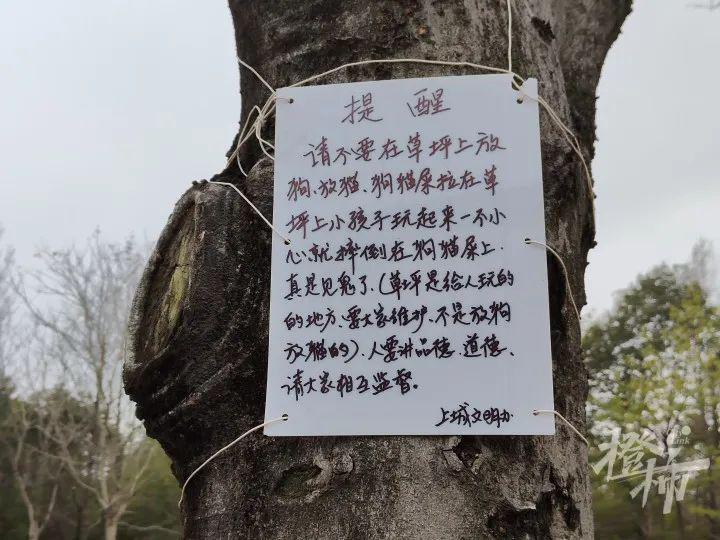 提醒
请不要在草坪上放
狗、放猫、狗猫屎拉在草
坪上小孩子玩起来一不小
心就摔倒在狗猫屎上.
真是见鬼了、(草坪是给人玩的
的地方、要大家维护、不是放狗
放猫的)、人要讲品德、道德、
请大家相互监督。
上城文明办
橙柿
Link